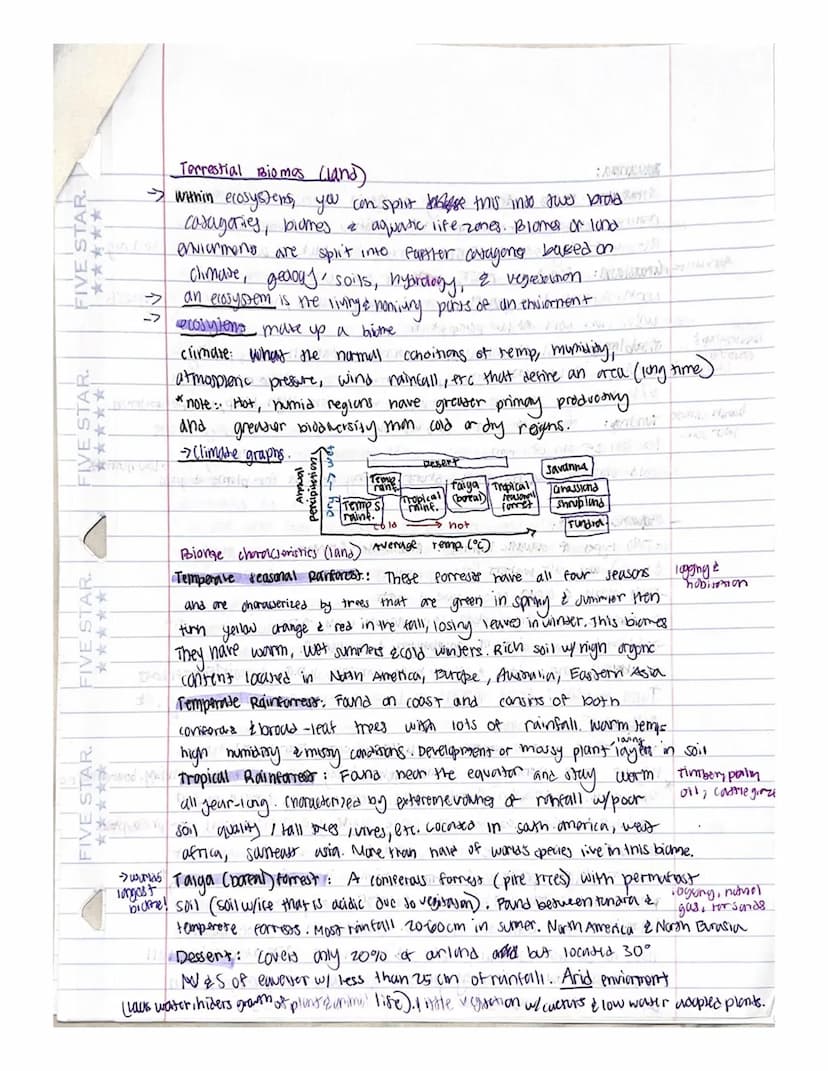 Terrestial Biomes (land)
→ Within ecosystems, you can split this into two broad
catagories, biomes & aquatic life zones. Biomes or land
enviorments are split into further catagories based on
climate, geology, soils, hybrology, & vegetation
→ an ecosystem is the living & nonliving parts of an enviorment
→ ecosystems make up a biome
climate: What the normall conditions of temp, humidity,
atmospheric pressure, wind rainfall, etc that define an area (long time)
*note: Hot, humid regions have greater primary producting
and greater biodiversity than cold or dry reigons.
→ Climate graphs.
Annual percipitation
Dry → wet
Desert
Temp rainf.
Temp S rainf.
Tropical rainf.
Taiga (boreal)
Tropical seasonal forrest
Savanna
Grassland
Shrubland
Tundra
cold → hot
Average Temp. (°C)
charactersistics (land)
Temperate seasonal Rainforest: These forrests have all four seasons
and are characterized by trees that are green in spring & summer then
turn yellow orange & red in the fall, losing leaves in winter. This biomes
They have warm, wet summers & cold winters. Rich soil w/ high organic
content located in North America, Europe, Australia, Eastern Asia
logging &
Temperate Rainforrest: Found on coast and consists of both
& broad-leaf trees with lots of rainfall. Warm temps
high humidity & misty conditions. Development or mossy plant layer in soil
living
Tropical Rainforrest: Found near the equator and stay warm
all year-long. Characterized by extereme volumes of rainfall w/ poor
soil quality / tall trees, vines, etc. Located in south america, west
africa, asia. More than half of worlds species live in this biome.
Timber, palm
oil, cattle graze
→ worlds
largest
biome!
Taiga (boreal) forrest: A coniferous forrest (pine trees) with permafrost
soil (soil w/ ice that is acidic due to vegitation). Found between tundra &
temperete forrests. Most rainfall 20-60cm in sumer. North America & North Eurasia
logging, naturel
gas, tar sands
Dessert: Covers only 20% of but located 30°
N & S of equator w/ less than 25 cm of rainfall. Arid enviorment
(lack water, hiders growth of plant & animal life). little vegetation w/ cactus & low water adapted plants.
FIVE STAR.
FIVE STAR.
FIVE STAR.
FIVE STAR.